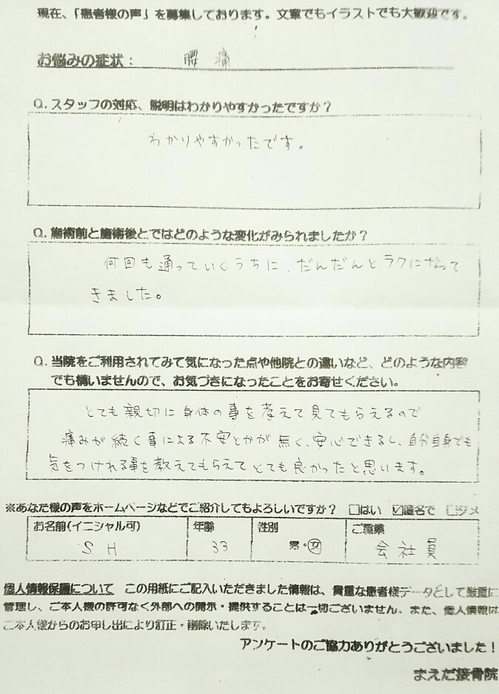 現在、「患者様の声」を募集しております。文章でもイラストでも大歓迎です。
お悩みの症状： 腰痛
Q. スタッフの対応、説明はわかりやすかったですか？
わかりやすかったです。
Q. 施術前と施術後とではどのような変化がみられましたか？
何回も通っていくうちに、だんだんとラクになって
きました。
Q. 当院をご利用されてみて気になった点や他院との違いなど、どのような内容
でも構いませんので、お気づきになったことをお寄せください。
とても親切に身体の事を考えて見てもらえるので
痛みが続く事による不安とかが無く、安心できるし、自分自身でも
気をつけれる事を教えてもらえてとても良かったと思います。
※あなた様の声をホームページなどでご紹介してもよろしいですか？ □はい ☑匿名で □ダメ
お名前(イニシャル可) 年齢 性別 ご職業
S H 33 男・女 会社員
個人情報保護について この用紙にご記入いただきました情報は、貴重な患者様データとして厳重に
管理し、ご本人様の許可なく外部への開示・提供することは一切ございません。また、個人情報は
ご本人様からのお申し出により訂正・削除いたします。
アンケートのご協力ありがとうございました！
まえだ接骨院